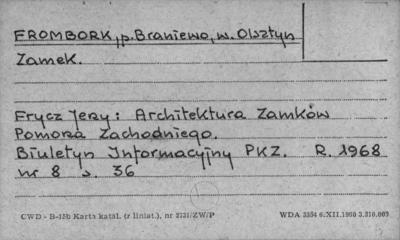 FROMBORK, p. Braniewo, w. Olsztyn
Zamek.
Frycz Jerzy: Architektura Zamków
Pomorza Zachodniego.
Biuletyn Informacyjny PKZ. R. 1968
nr 8 s. 36
CWD - B-15b Karta katal. (z liniat.), nr 2731/ZW/P WDA 3354 6.XII.1960 3.210.000